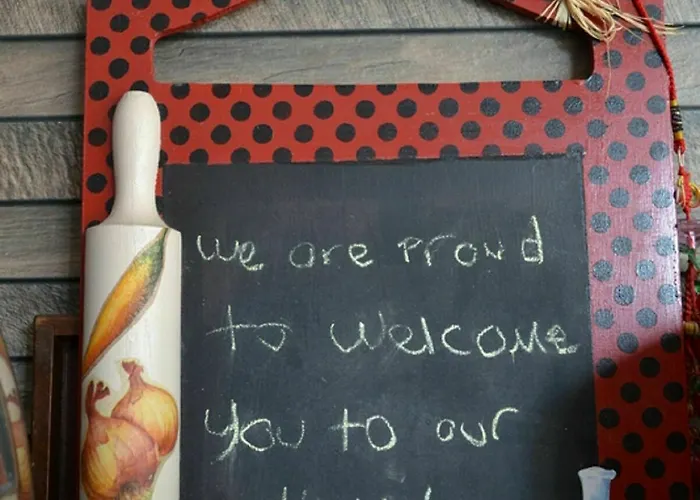 we are proud
to welcome
you to our